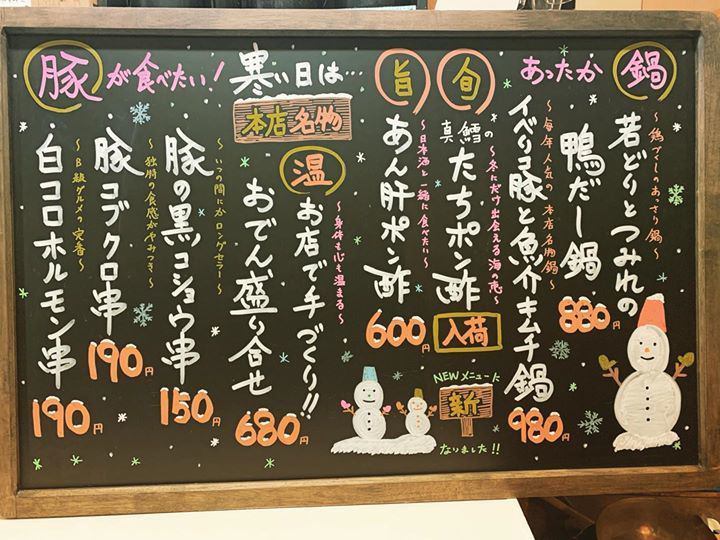 あったか 鍋
〜鶏だしのあっさり鍋〜
若どりとつみれの
鴨だし鍋
880円
〜毎年人気の本店名物鍋〜
イベリコ豚と魚介キムチ鍋
980円
旨 旬
真鱈の
〜冬にだけ出会える海の恵〜
たちポン酢
入荷
〜日本酒と一緒に食べたい〜
あん肝ポン酢
600円
NEWメニューに
新
なりました!!
寒い日は…
本店名物
温
〜身体も心も温まる〜
お店で手づくり!!
おでん盛り合せ
680円
豚が食べたい!
〜いつの間にかロングセラー〜
豚の黒コショウ串
150円
〜独特の食感がやみつき〜
豚コブクロ串
190円
〜B級グルメの定番〜
白コロホルモン串
190円